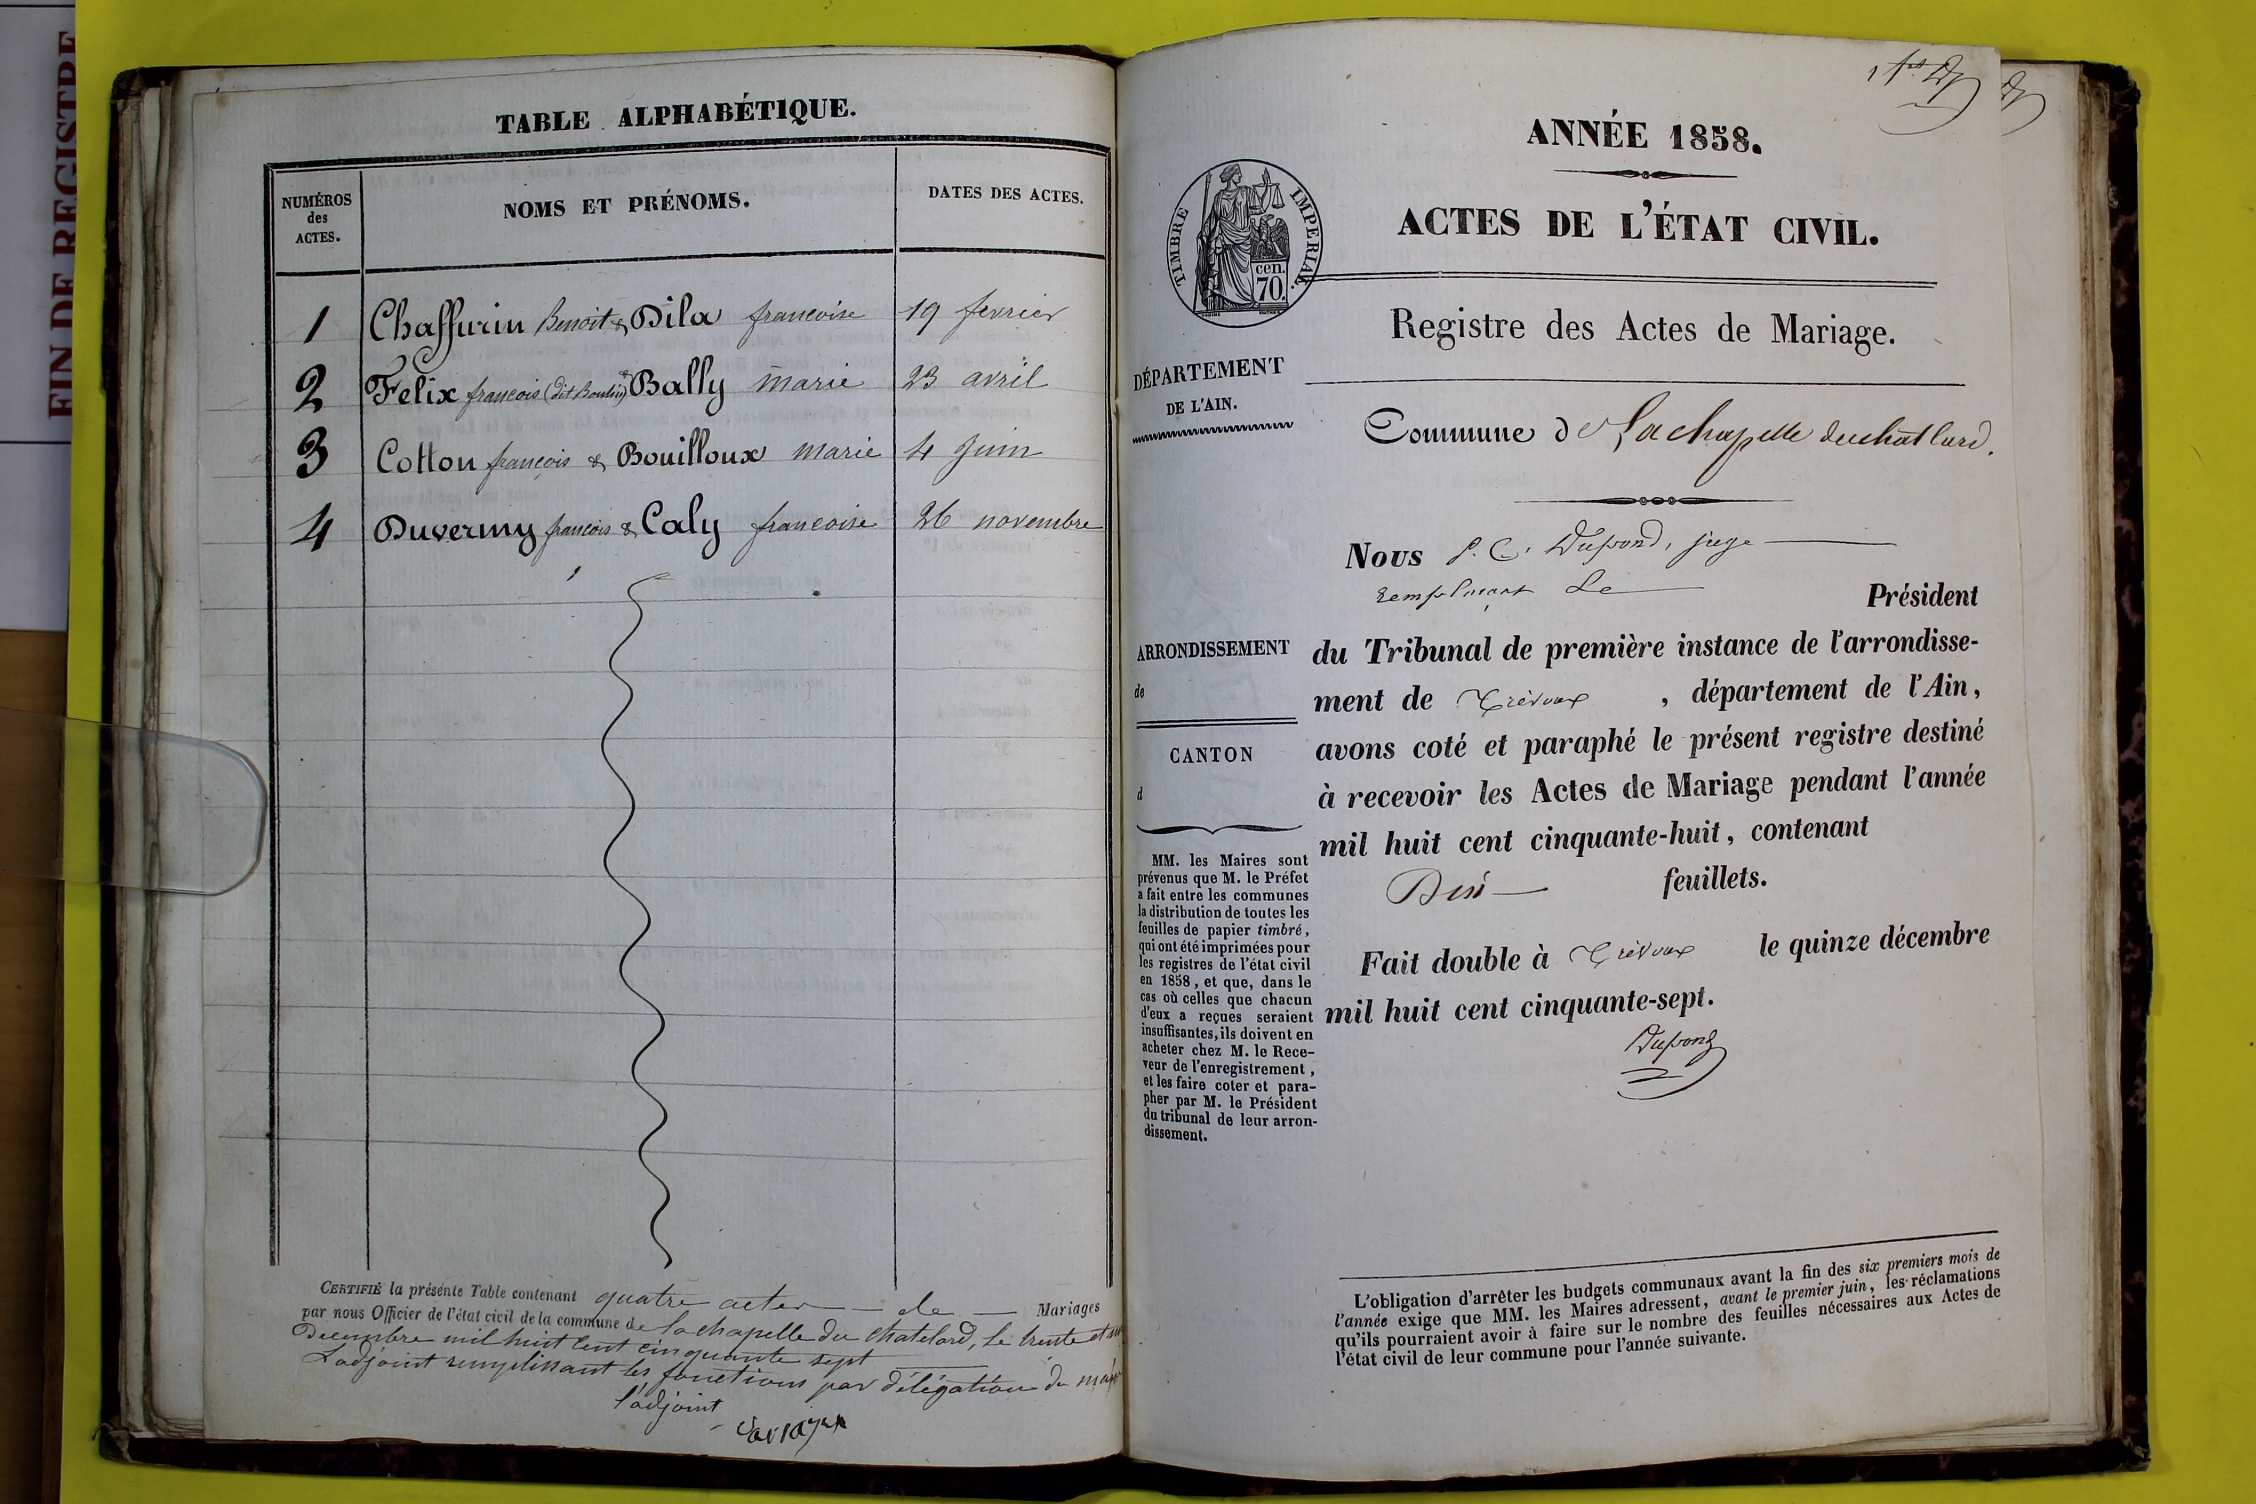 FIN DE REGISTRE
TABLE ALPHABÉTIQUE.
NUMÉROS
des
ACTES.
NOMS ET PRÉNOMS.
DATES DES ACTES.
1 Chaffurin Benoit & Dila francoise 19 fevrier
2 Felix françois (dit Boulin) & Bally marie 23 avril
3 Cotton françois & Bouilloux marie 4 Juin
4 Duverny françois & Caly francoise 26 novembre
CERTIFIÉ la présente Table contenant quatre actes de Mariages
par nous Officier de l'état civil de la commune de la chapelle du chatelard, le trente et un
Decembre mil huit cent cinquante sept
L'adjoint remplissant les fonctions par délégation du maire
l'adjoint
ANNÉE 1858.
ACTES DE L'ÉTAT CIVIL.
TIMBRE IMPERIAL.
cen.
70.
Registre des Actes de Mariage.
DÉPARTEMENT
DE L'AIN.
Commune de Lachapelle duchatlard.
Nous P. C. Dupond, juge
remplaçant Le Président
ARRONDISSEMENT
de
CANTON
d
du Tribunal de première instance de l'arrondisse-
ment de Trévoux, département de l'Ain,
avons coté et paraphé le présent registre destiné
à recevoir les Actes de Mariage pendant l'année
mil huit cent cinquante-huit, contenant
feuillets.
Fait double à Trévoux le quinze décembre
mil huit cent cinquante-sept.
Dupond
MM. les Maires sont
prévenus que M. le Préfet
a fait entre les communes
la distribution de toutes les
feuilles de papier timbré,
qui ont été imprimées pour
les registres de l'état civil
en 1858, et que, dans le
cas où celles que chacun
d'eux a reçues seraient
insuffisantes, ils doivent en
acheter chez M. le Rece-
veur de l'enregistrement,
et les faire coter et para-
pher par M. le Président
du tribunal de leur arron-
dissement.
L'obligation d'arrêter les budgets communaux avant la fin des six premiers mois de
l'année exige que MM. les Maires adressent, avant le premier juin, les réclamations
qu'ils pourraient avoir à faire sur le nombre des feuilles nécessaires aux Actes de
l'état civil de leur commune pour l'année suivante.